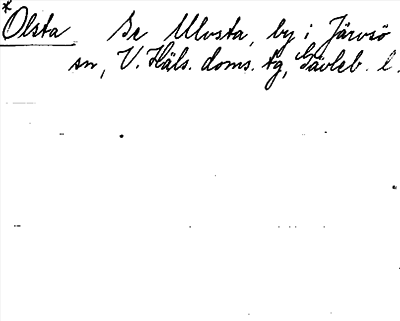 *Olsta Se Ulvsta, by i Järvsö
sn, V. Häls. doms. tg, Gävleb. l.